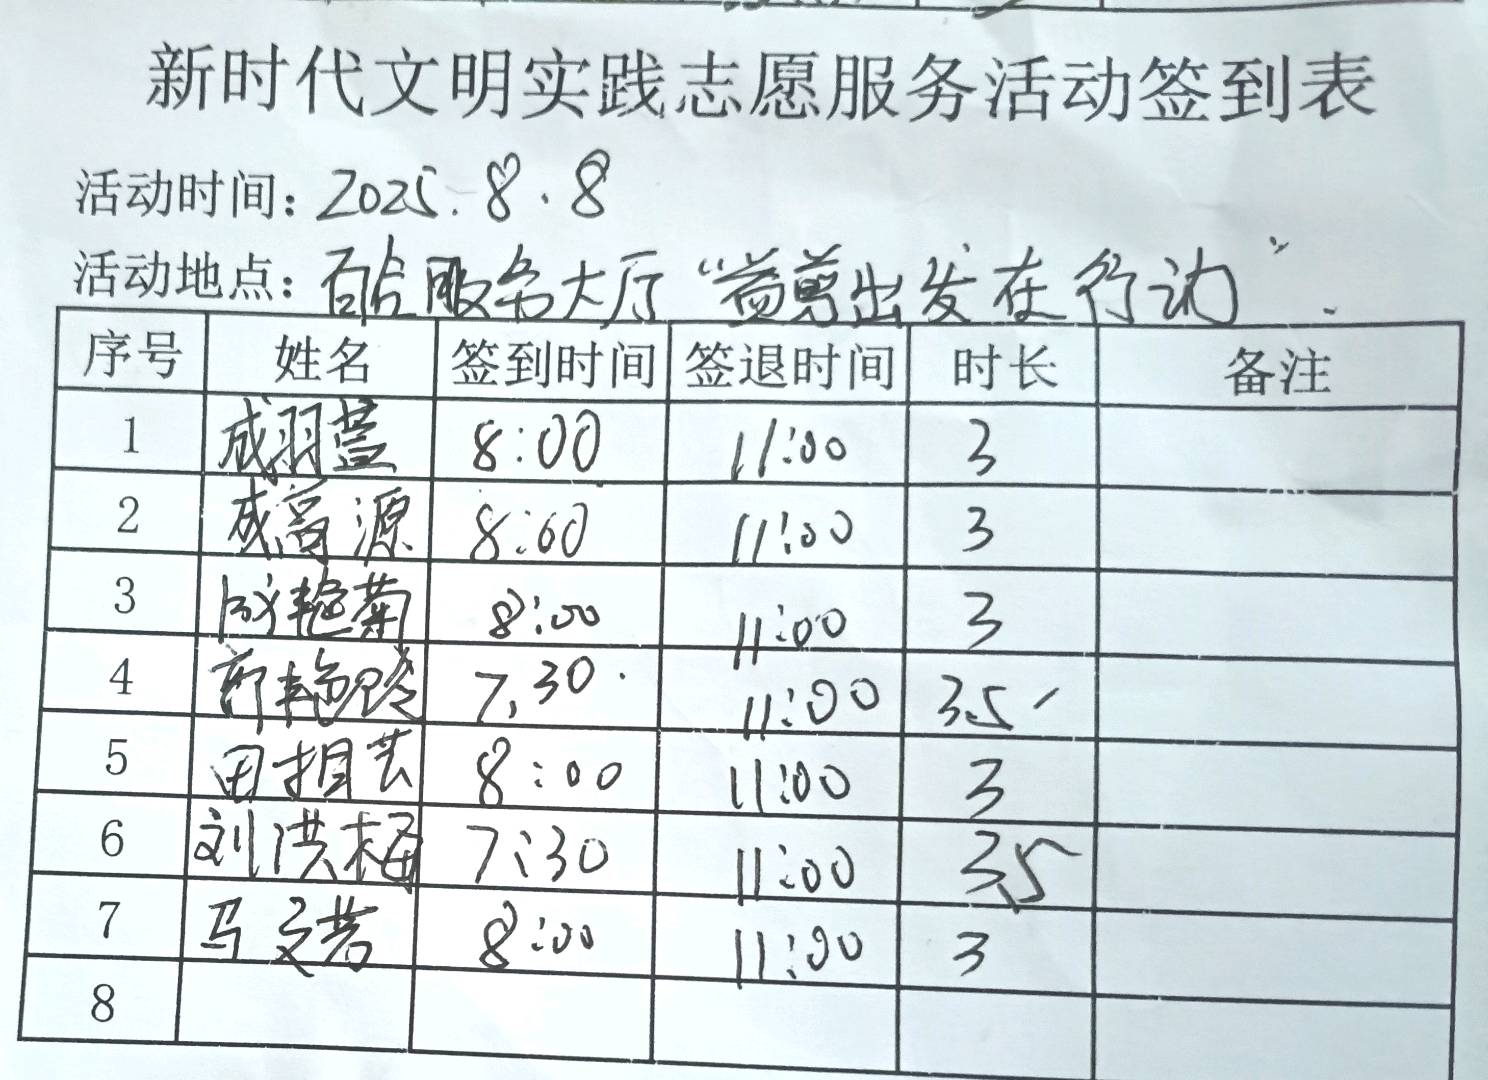 新时代文明实践志愿服务活动签到表
活动时间: 2025.8.8
活动地点: 石占服务大厅 “益剪出发在行动”.
序号 姓名 签到时间 签退时间 时长 备注
1 成羽萱 8:00 11:00 3
2 成富源 8:00 11:00 3
3 成艳菊 8:00 11:00 3
4 艳 7.30 11:00 3.5
5 田相芸 8:00 11:00 3
6 刘洪梅 7:30 11:00 3.5
7 马文若 8:00 11:00 3
8